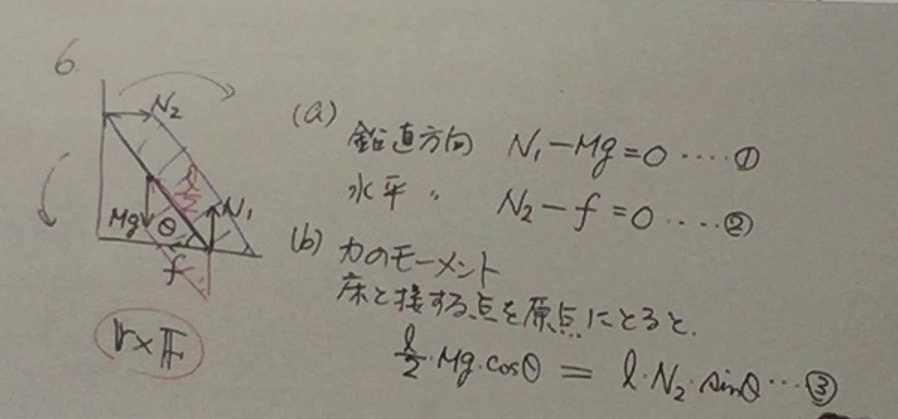 6.
N₂
l/2
N₁
Mg
θ
f
r×F
(a)
鉛直方向 N₁-Mg=0 ‥‥①
水平 〃 N₂-f=0 ‥‥②
(b) 力のモーメント
床と接する点を原点にとると、
l/2・Mg・cosθ = l・N₂・sinθ ‥‥③